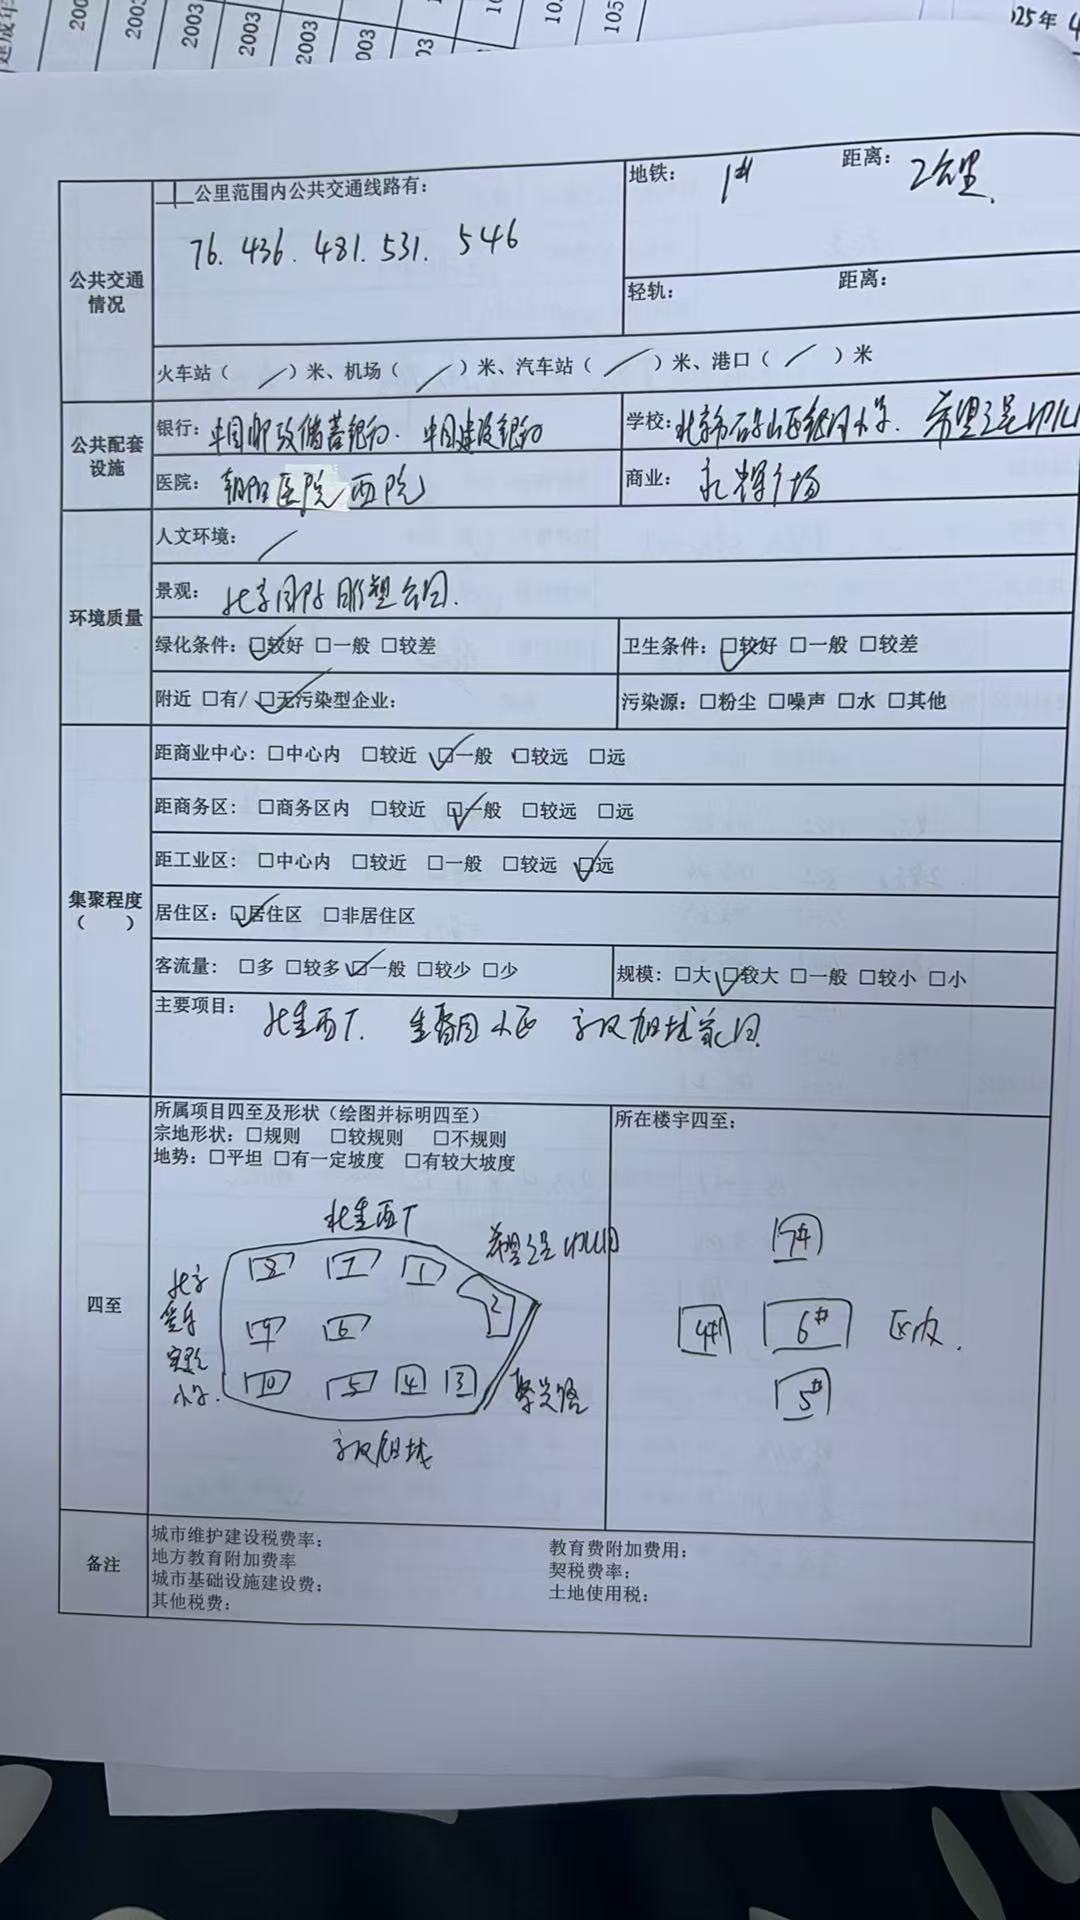 建成年
200
2003
2003
2003
2003
003
03
10
105
025年4
一公里范围内公共交通线路有：
地铁： 1# 距离： 2公里.
76. 436. 481. 531. 546
公共交通情况
轻轨： 距离：
火车站（ / ）米、机场（ / ）米、汽车站（ / ）米、港口（ / ）米
公共配套设施
银行： 中国邮政储蓄银行. 中国建设银行
学校： 北京市石景山区 小学. 希望之星幼儿
医院： 朝阳医院西院
商业： 永辉广场
环境质量
人文环境： /
景观： 北京国际雕塑公园.
绿化条件：☑较好 □一般 □较差
卫生条件：☑较好 □一般 □较差
附近 □有/ ☑无污染型企业：
污染源：□粉尘 □噪声 □水 □其他
集聚程度
（ ）
距商业中心：□中心内 □较近 ☑一般 □较远 □远
距商务区：□商务区内 □较近 ☑一般 □较远 □远
距工业区：□中心内 □较近 □一般 □较远 ☑远
居住区：☑居住区 □非居住区
客流量：□多 □较多 ☑一般 □较少 □少
规模：□大 ☑较大 □一般 □较小 □小
主要项目： 北重西厂. 小区
四至
所属项目四至及形状（绘图并标明四至）
宗地形状：□规则 □较规则 □不规则
地势：□平坦 □有一定坡度 □有较大坡度
北重西厂
希望之星幼儿园
8 7 1
2
9 6
10 5 4 3
北京
实验
小学.
聚兴路
所在楼宇四至：
7#
4# 6# 区内.
5#
备注
城市维护建设税费率：
地方教育附加费率
城市基础设施建设费：
其他税费：
教育费附加费用：
契税费率：
土地使用税：